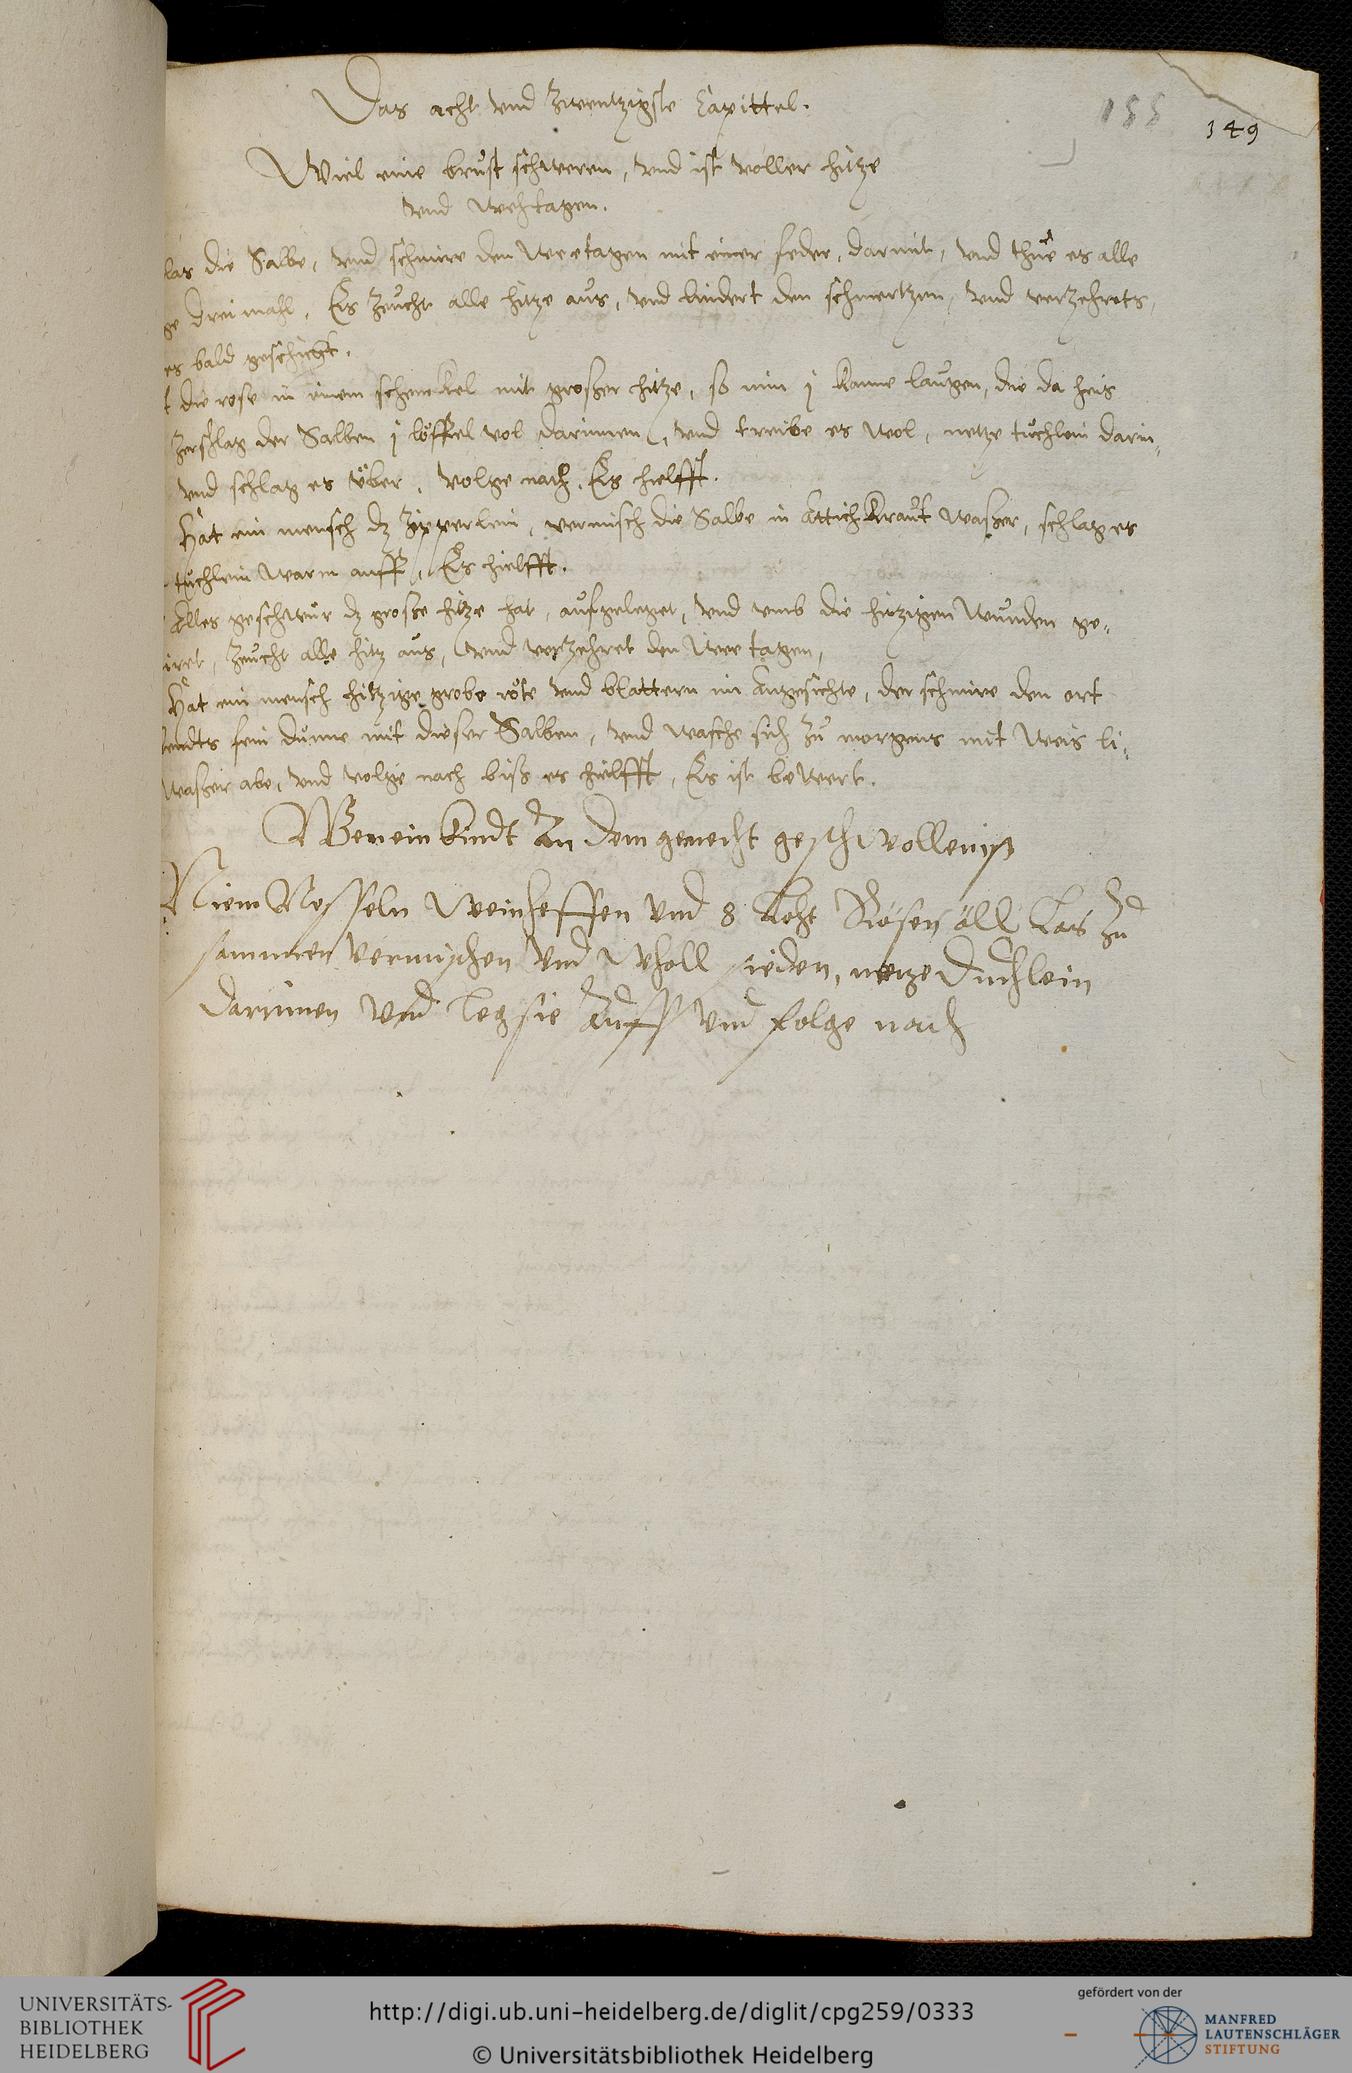 155
149
Das acht vnd zwentzigste Capittel.
Wiel eine brust schweren, vnd ist voller hitze
vnd wehtagen.
las die Salbe, vnd schmire den weetagen mit einer feder, darmit, vnd thue es alle
ge drei mahl, Es zeucht alle hitze aus, vnd lindert den schmertzen, vnd verzehrets,
es bald geschicht.
t die rose in einem schenckel mit großer hitze, so nim j kanne laugen, die da heis
zerschlag der Salben j löffel vol darinnen, vnd treibe es wol, netze tuchlein darin,
vnd schlag es vber, volge nach, Es hielfft.
Hat ein mensch dz Zipperlein, vermisch die Salbe in Attichkraut waßer, schlag es
tuchlein warm auff, Es hielfft.
Alles geschwur dz große hitze hat, aufgeleget, vnd vmb die hitzigen wunden ge-
iret, zeucht alle hitz aus, vnd verzehret den wee tagen,
Hat ein mensch hitzige grobe röte vnd blattern im Angesichte, der schmire den ort
bendts fein dunne mit dieser Salben, vnd wasche sich zu morgens mit weis li-
waßer abe, vnd volge nach biß es hielfft, Es ist bewert.
Wen ein kindt An dem gemecht geschwollen iß
Niem Nesseln weinheffen vnd 8 Loht Rosen öll Las zu
sammen vermischen vnd wholl sieden, netze Duchlein
darinnen vnd leg sie Auff vnd folge nach
UNIVERSITÄTS-
BIBLIOTHEK
HEIDELBERG
http://digi.ub.uni-heidelberg.de/diglit/cpg259/0333
© Universitätsbibliothek Heidelberg
gefördert von der
MANFRED
LAUTENSCHLÄGER
STIFTUNG